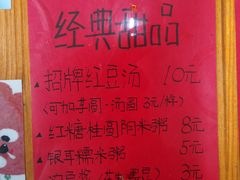 经典甜品
招牌红豆汤 10元
(可加芋圆·汤圆 3元/样)
红糖桂圆阿米粥 8元
银耳糯米粥 5元
3元